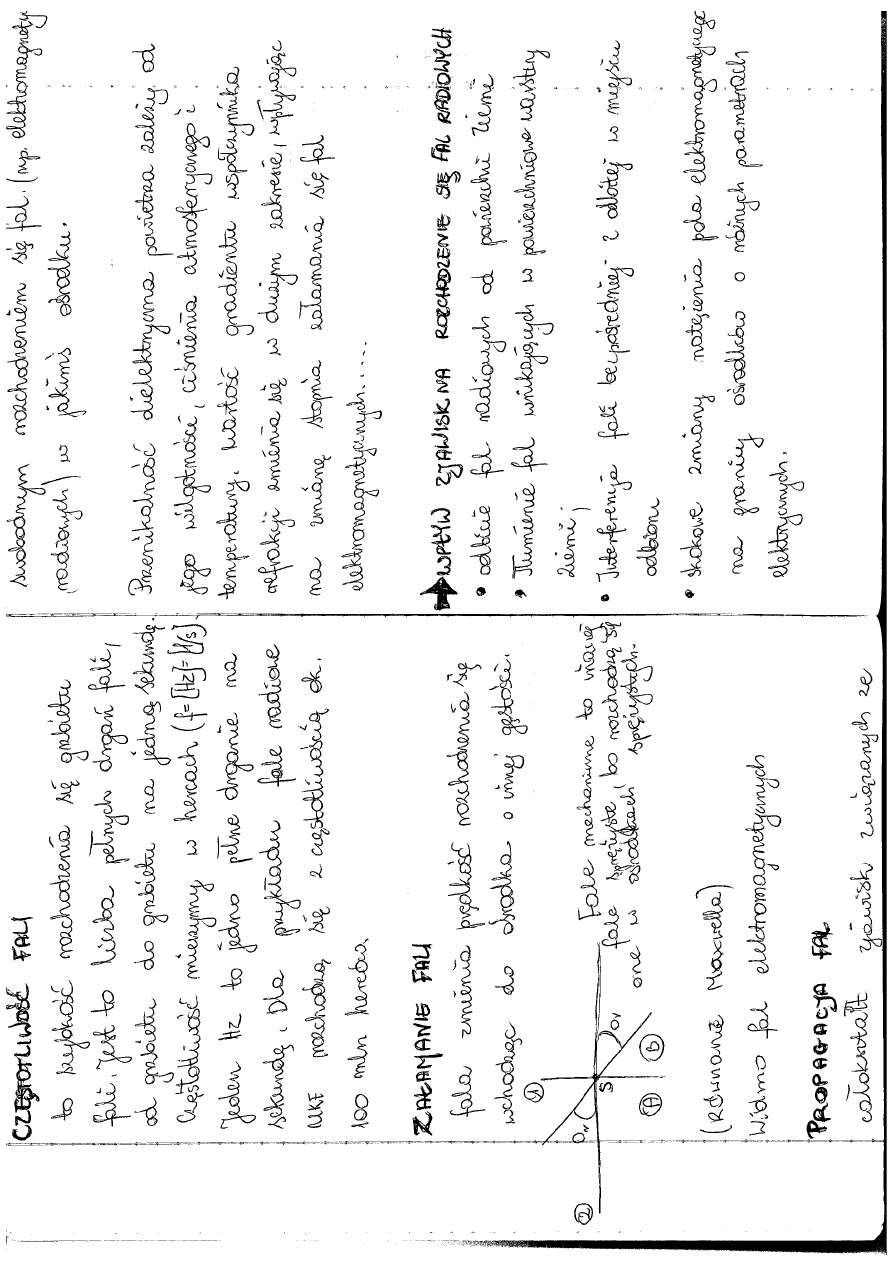 CZĘSTOTLIWOŚĆ FALI
to szybkość rozchodzenia się grzbietu
fali. Jest to liczba pełnych drgań fali,
od grzbietu do grzbietu na jedną sekundę.
Częstotliwość mierzymy w hercach (f=[Hz]=[1/s].
Jeden Hz to jedno pełne drganie na
sekundę. Dla przykładu fale radiowe
UKF rozchodzą się z częstotliwością ok.
100 mln herców
ZAŁAMANIE FALI
fala zmienia prędkość rozchodzenia się
wchodząc do ośrodka o innej gęstości.
1
2
S
A
B
Fale mechaniczne to inaczej
fale sprężyste, bo rozchodzą się
one w ośrodkach sprężystych.
(Równanie Maxwella)
Widmo fal elektromagnetycznych
PROPAGACJA FAL
całokształt zjawisk związanych ze
swobodnym rozchodzeniem się fal. (np. elektromagnety
radiowych) w jakimś ośrodku.
Przenikalność dielektryczna powietrza zależy od
jego wilgotności, ciśnienia atmosferycznego i
temperatury. Wartość gradientu współczynnika
refrakcji zmienia się w dużym zakresie, wpływając
na zmianę stopnia załamania się fal
elektromagnetycznych.....
→ WPŁYW ZJAWISK NA ROZCHODZENIE SIĘ FAL RADIOWYCH
• odbicie fal radiowych od powierzchni Ziemi
• Tłumienie fal wnikających w powierzchniowe warstwy
Ziemi;
• Interferencja fali bezpośredniej z odbitej w miejscu
odbioru
• skokowe zmiany natężenia pola elektromagnetycznego
na granicy ośrodków o różnych parametrach
elektrycznych.